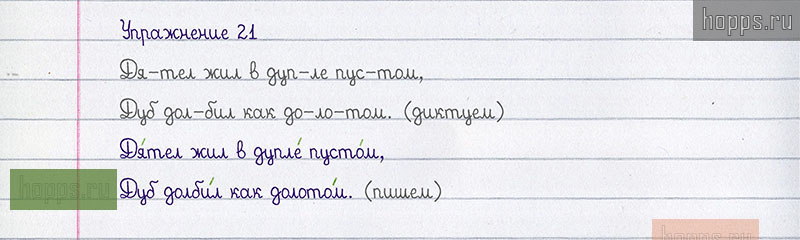 hopps.ru
Упражнение 21
Дя-тел жил в дуп-ле пус-том,
Дуб дол-бил как до-ло-том. (диктуем)
Дя́тел жил в дупле́ пусто́м,
Дуб долби́л как долото́м. (пишем)
hopps.ru
hopps.ru